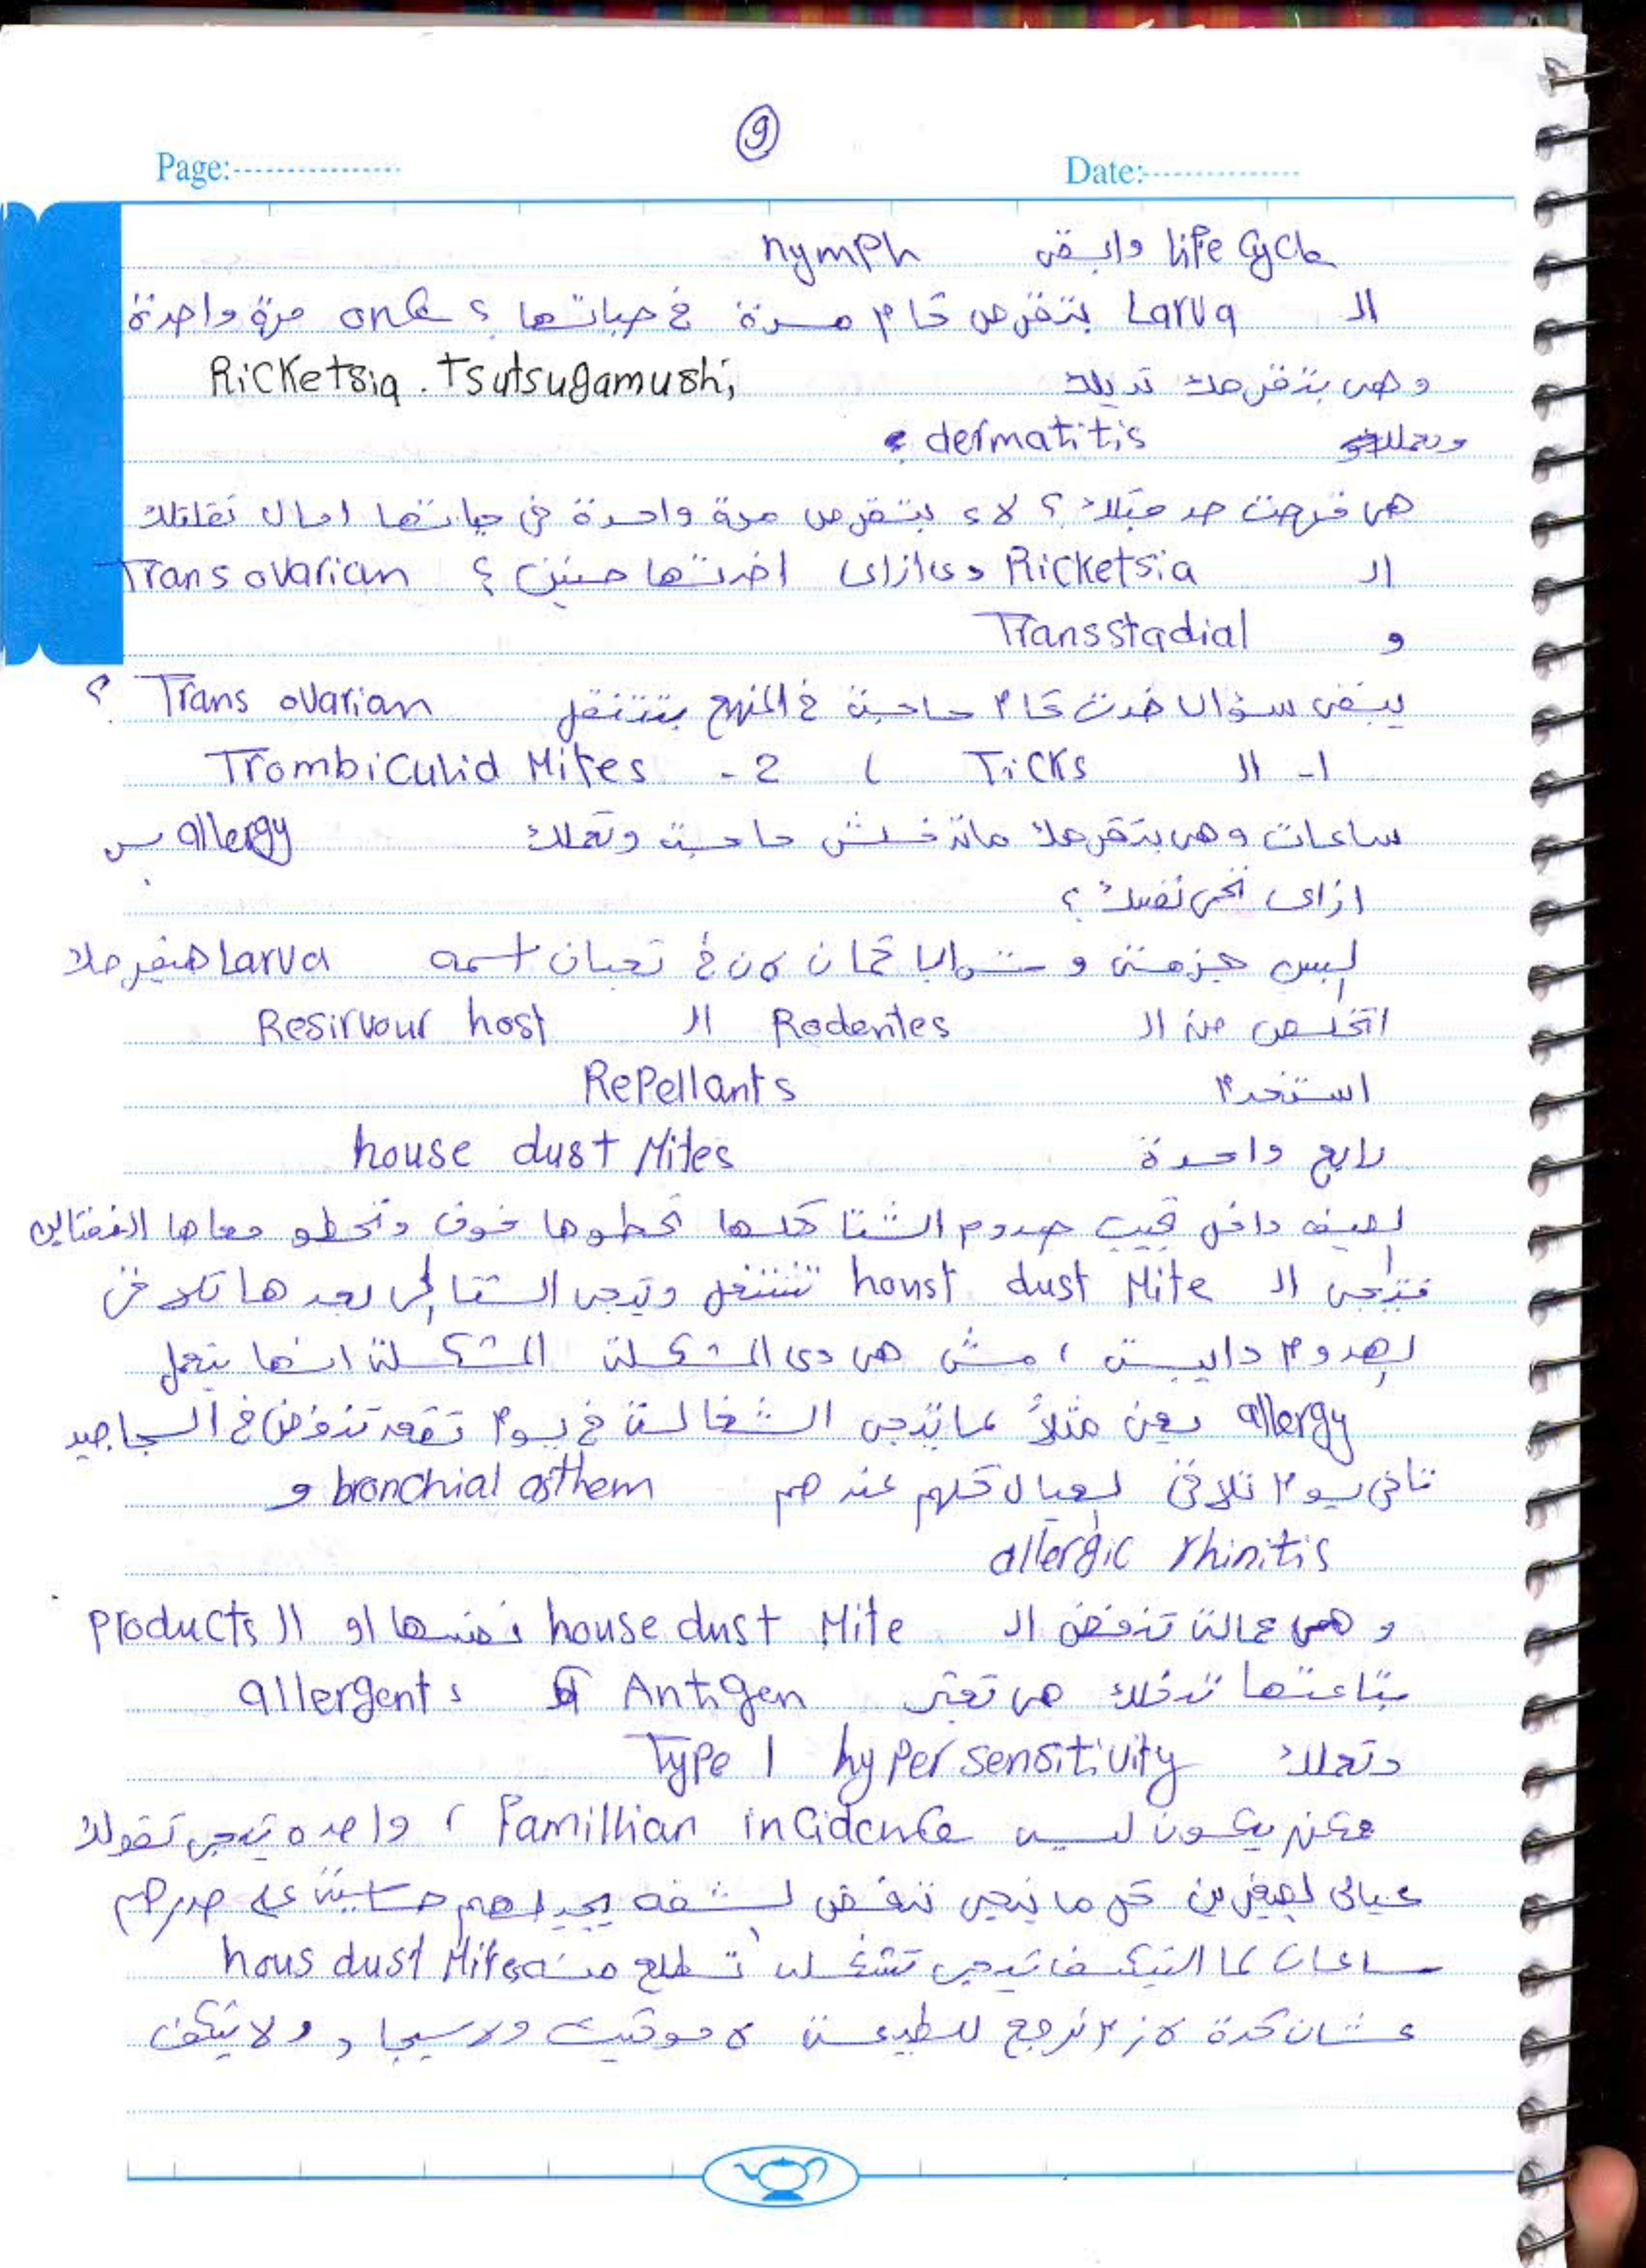 9
Page: Date:
life cycle وابقى nymph
ال Larva بتقرص كام مرة في حياتها ؟ once مرة واحدة
وهى بتقرصك تديلك Ricketsia . Tsutsugamushi
وتعملك dermatitis
هى قرصت حد قبلك ؟ لاء بتقرص مرة واحدة في حياتها امال نقلتلك
ال Ricketsia دى ازاى اخدتها منين ؟ Trans ovarian
و Transstadial
يبقى سؤال خدت كام حاجة في المنهج بتتنقل Trans ovarian ؟
1- ال Ticks ، 2- Trombiculid Mites
ساعات وهى بتقرصك ماتدخلش حاجة وتعملك allergy بس
ازاى نحمى نفسك ؟
البس جزمتى و شرابا كمان لان في تعبان اسمه larva هيقرصك
اتخلص من ال Rodentes ال Resirvour host
استخدم Repellants
رابع واحدة house dust Mites
الصيف داخل تجيب هدوم الشتا كلها تحطوها فوق وتحطو معاها الفساتين
فتيجى ال houst dust Mite تشتغل وتيجى الشتا الى بعدها تلاقى
الهدوم دايبة ، مش هى دى المشكلة المشكلة انها بتعمل
allergy يعنى مثلاً لما تيجى الشغالة في يوم تقعد تنفض في السجاجيد
تانى يوم تلاقى العيال كلهم عندهم bronchial asthem و
allergic rhinitis
و همى عمالة تنفض ال house dust Mite نفسها او ال Products
بتاعتها تدخلك هى تعتبر Antigen allergents
وتعملك Type 1 hyper sensitivity
ممكن يكون ليه Famillian incidence ، واحده تيجى تقولك
عيالى الصغيرين كل ما نيجى ننفض الشقه يجيلهم حساسية على صدرهم
ساعات لما التكيف تيجى تشغله تطلع منه hous dust Mites
عشان كدة لازم نرجع للطبيعة لا موكيت ولا سجاد ولا تكيف